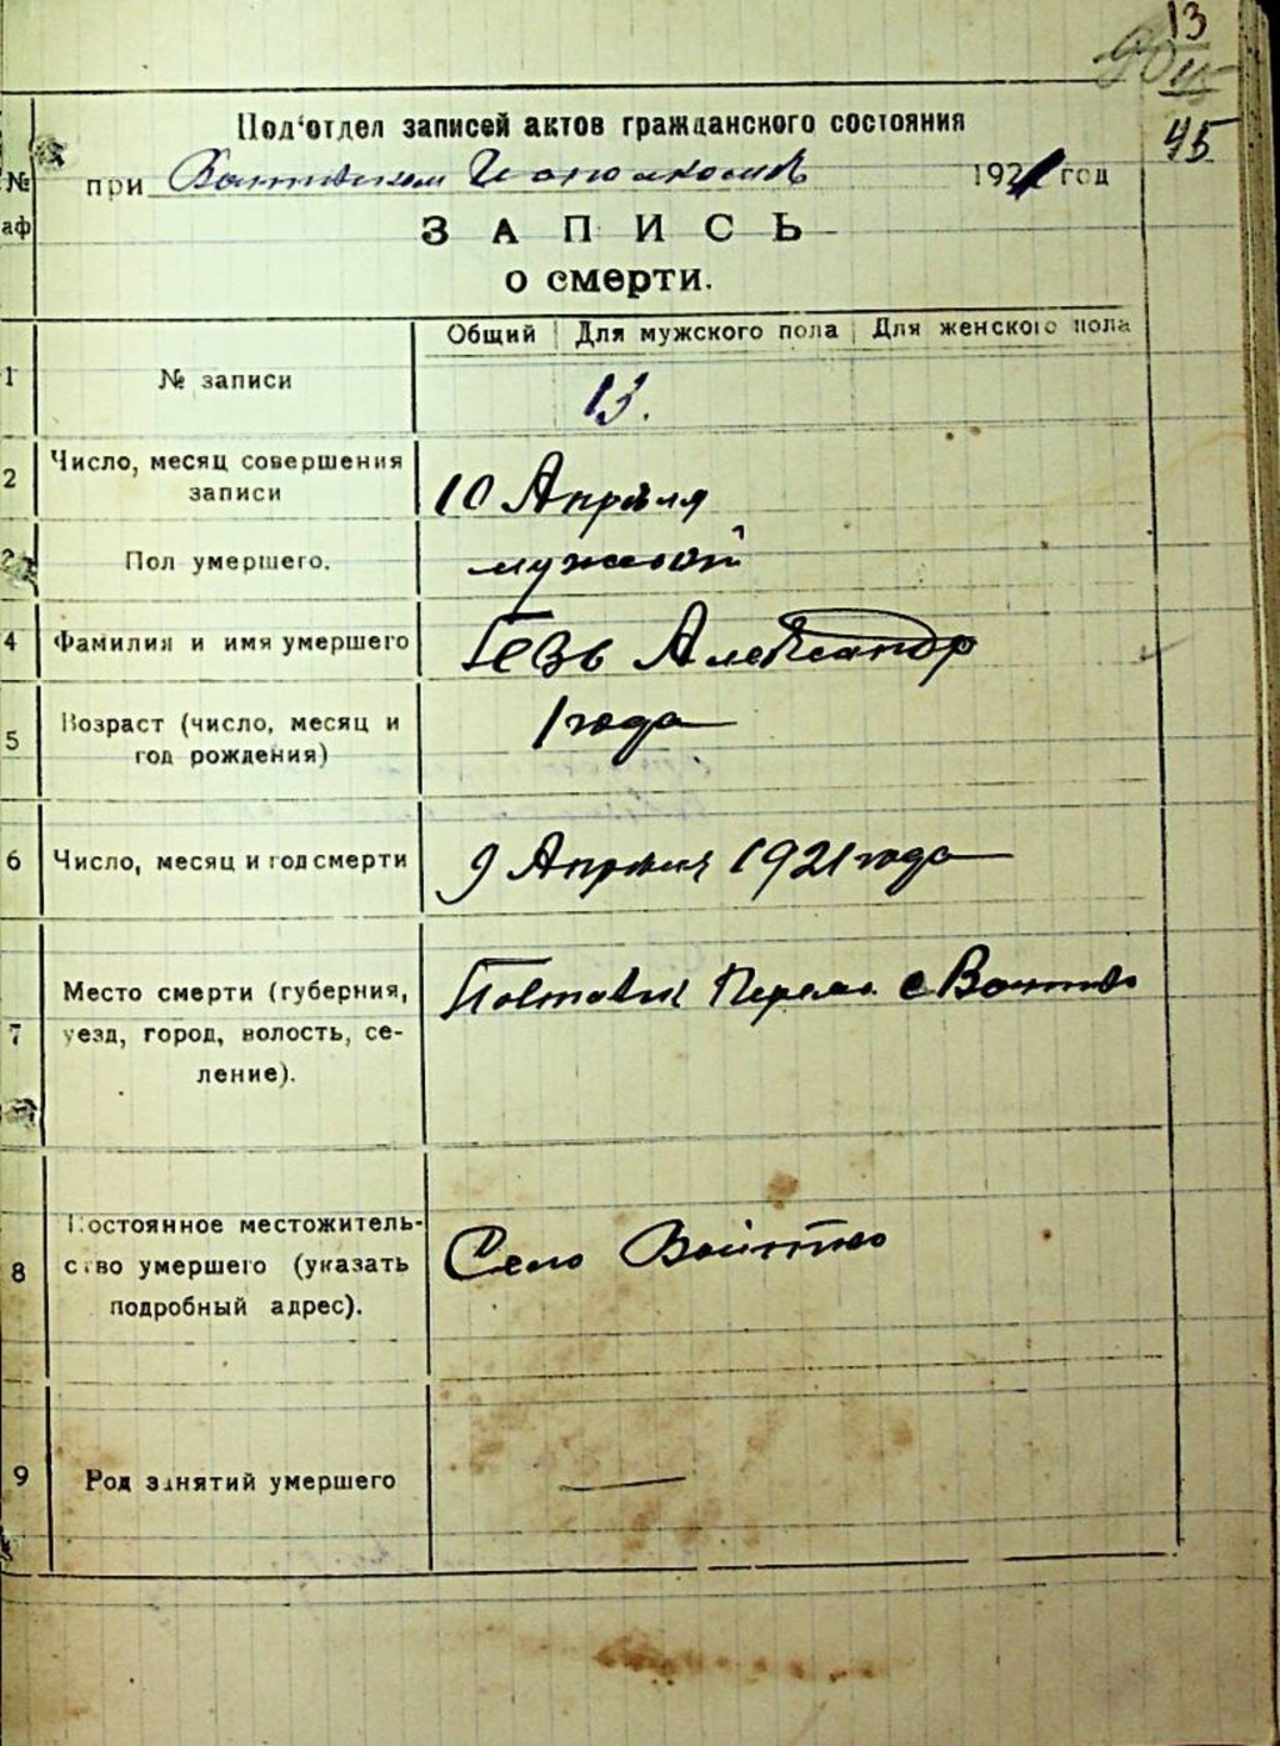 13
45
Под'отдел записей актов гражданского состояния
№
при Войтовском Исполкоме 1921 год
аф
ЗАПИСЬ
о смерти.
Общий Для мужского пола Для женского пола
1 № записи 13.
2 Число, месяц совершения
записи 10 Апреля
Пол умершего. мужской
4 Фамилия и имя умершего Гезь Александр
5 Возраст (число, месяц и
год рождения) 1 года
6 Число, месяц и год смерти 9 Апреля 1921 года
7 Место смерти (губерния,
уезд, город, волость, се-
ление). Полтавск Переяс. с Войтово
8 Постоянное местожитель-
ство умершего (указать
подробный адрес). Село Войтово
9 Род занятий умершего —